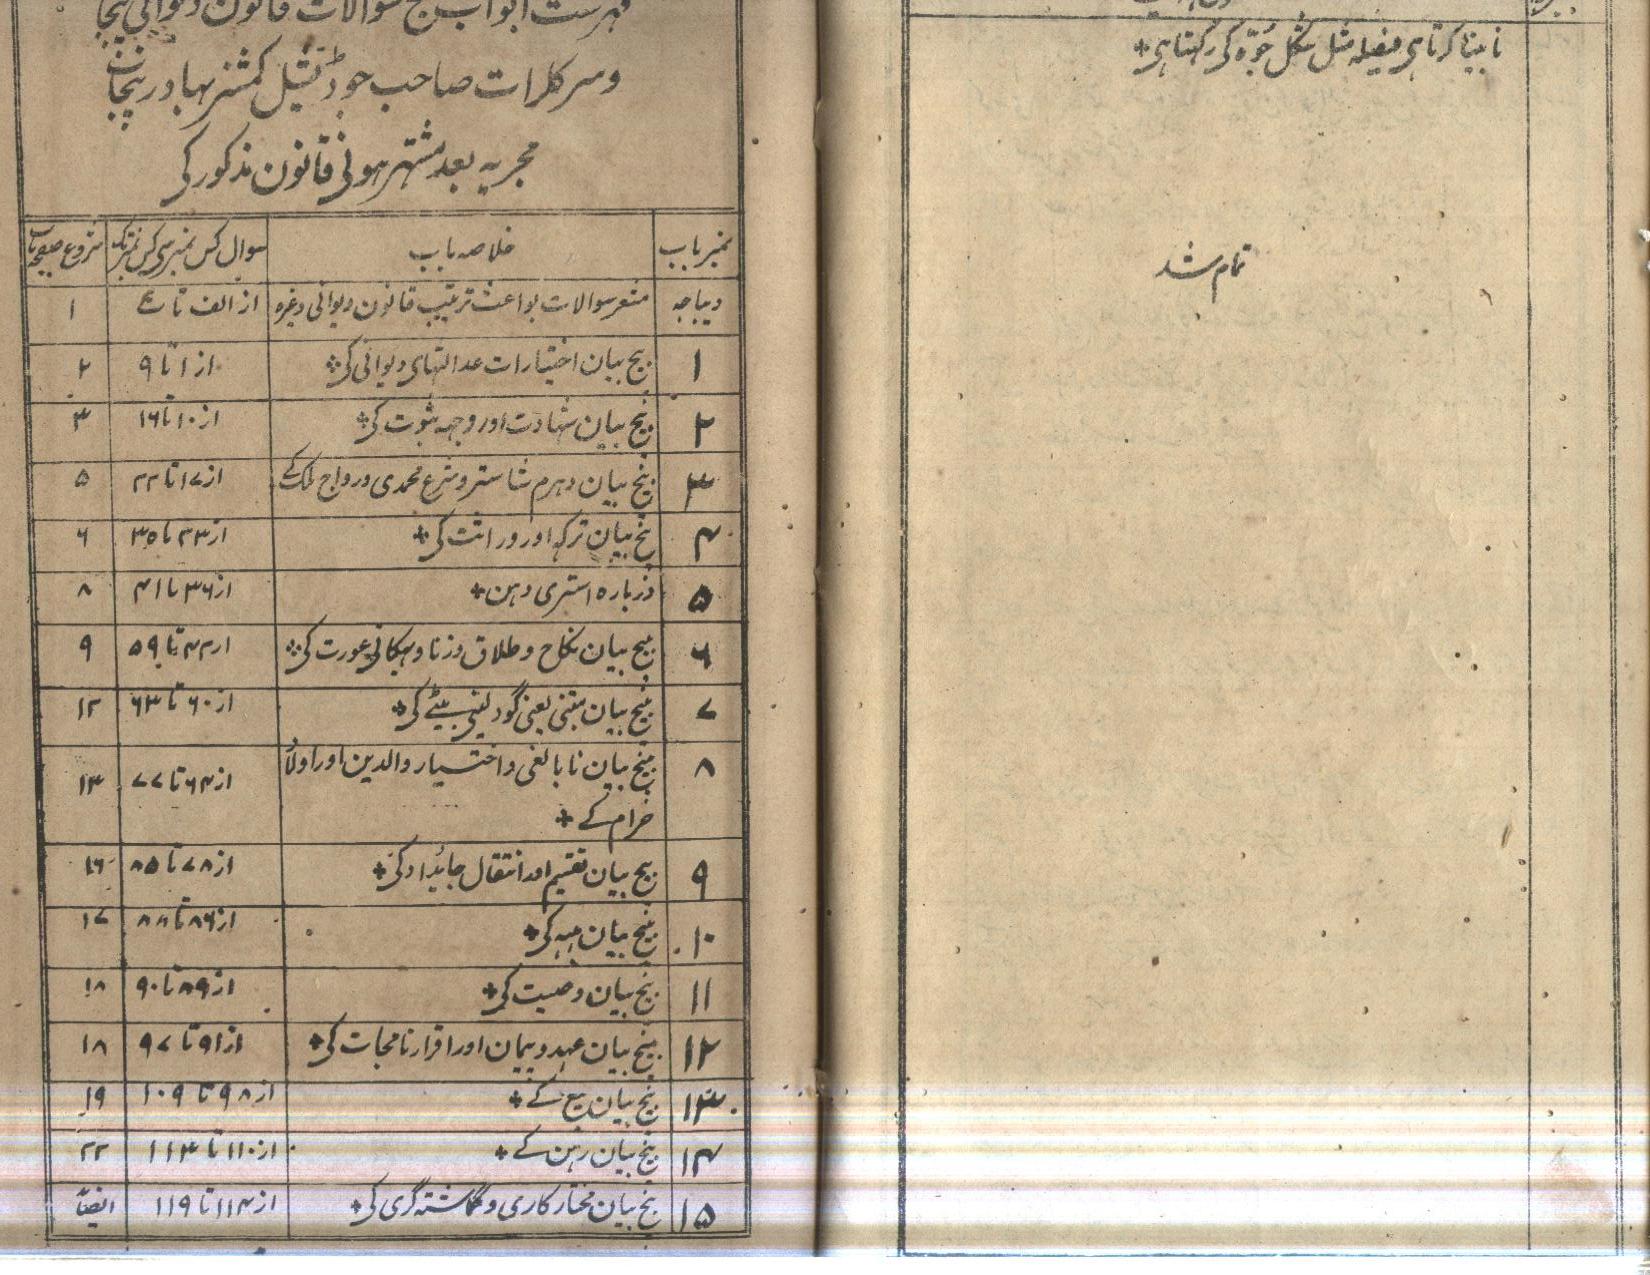 نابینا کرتا ہی فیصلہ مثل شکل جُوّہ کی رکہتا ہی
تمام شد
فہرست ابواب بیچ سوالات قانون دیوانی پنجاب
و سرکلرات صاحب جوڈیشیل کمشنر بہادر پنجاب
مجریہ بعد مشتہر ہونی قانون مذکور کی
نمبر باب | خلاصہ باب | سوال کس نمبر سی کس نمبر تک | شروع صفحہ
دیباچہ | سوالات بواعث ترتیب قانون دیوانی وغیرہ | از الف تا | ۱
۱ | بیچ بیان اختیارات عدالتہای دیوانی کی | از ۱ تا ۹ | ۲
۲ | بیچ بیان شہادت اور وجہہ ثبوت کی | از ۱۰ تا ۱۶ | ۳
۳ | بیچ بیان دہرم شاستر و شرع محمدی و رواج ملک کے | از ۱۷ تا ۲۲ | ۵
۴ | بیچ بیان ترکہ اور وراثت کی | از ۲۳ تا ۳۵ | ۶
۵ | درباره استری دہن | از ۳۶ تا ۴۱ | ۸
۶ | بیچ بیان نکاح و طلاق و زنا و بہکانی عورت کی | از ۴۲ تا ۵۹ | ۹
۷ | بیچ بیان متبنی یعنی گود لینی بیٹے کی | از ۶۰ تا ۶۳ | ۱۲
۸ | بیچ بیان نابالغی و اختیار والدین اور اولاد | از ۶۴ تا ۷۷ | ۱۳
حرام کے
۹ | بیچ بیان تقسیم اور انتقال جائداد کی | از ۷۸ تا ۸۵ | ۱۶
۱۰ | بیچ بیان ہبہ کی | از ۸۶ تا ۸۸ | ۱۷
۱۱ | بیچ بیان وصیت کی | از ۸۹ تا ۹۰ | ۱۸
۱۲ | بیچ بیان عہد و پیمان اور اقرارنامجات کی | از ۹۱ تا ۹۷ | ۱۸
۱۳ | بیچ بیان بیع کے | از ۹۸ تا ۱۰۹ | ۱۹
۱۴ | بیچ بیان رہن کے | از ۱۱۰ تا ۱۱۳ | ۲۲
۱۵ | بیچ بیان مختارکاری و گماشتہ گری کی | از ۱۱۴ تا ۱۱۹ | ایضاً